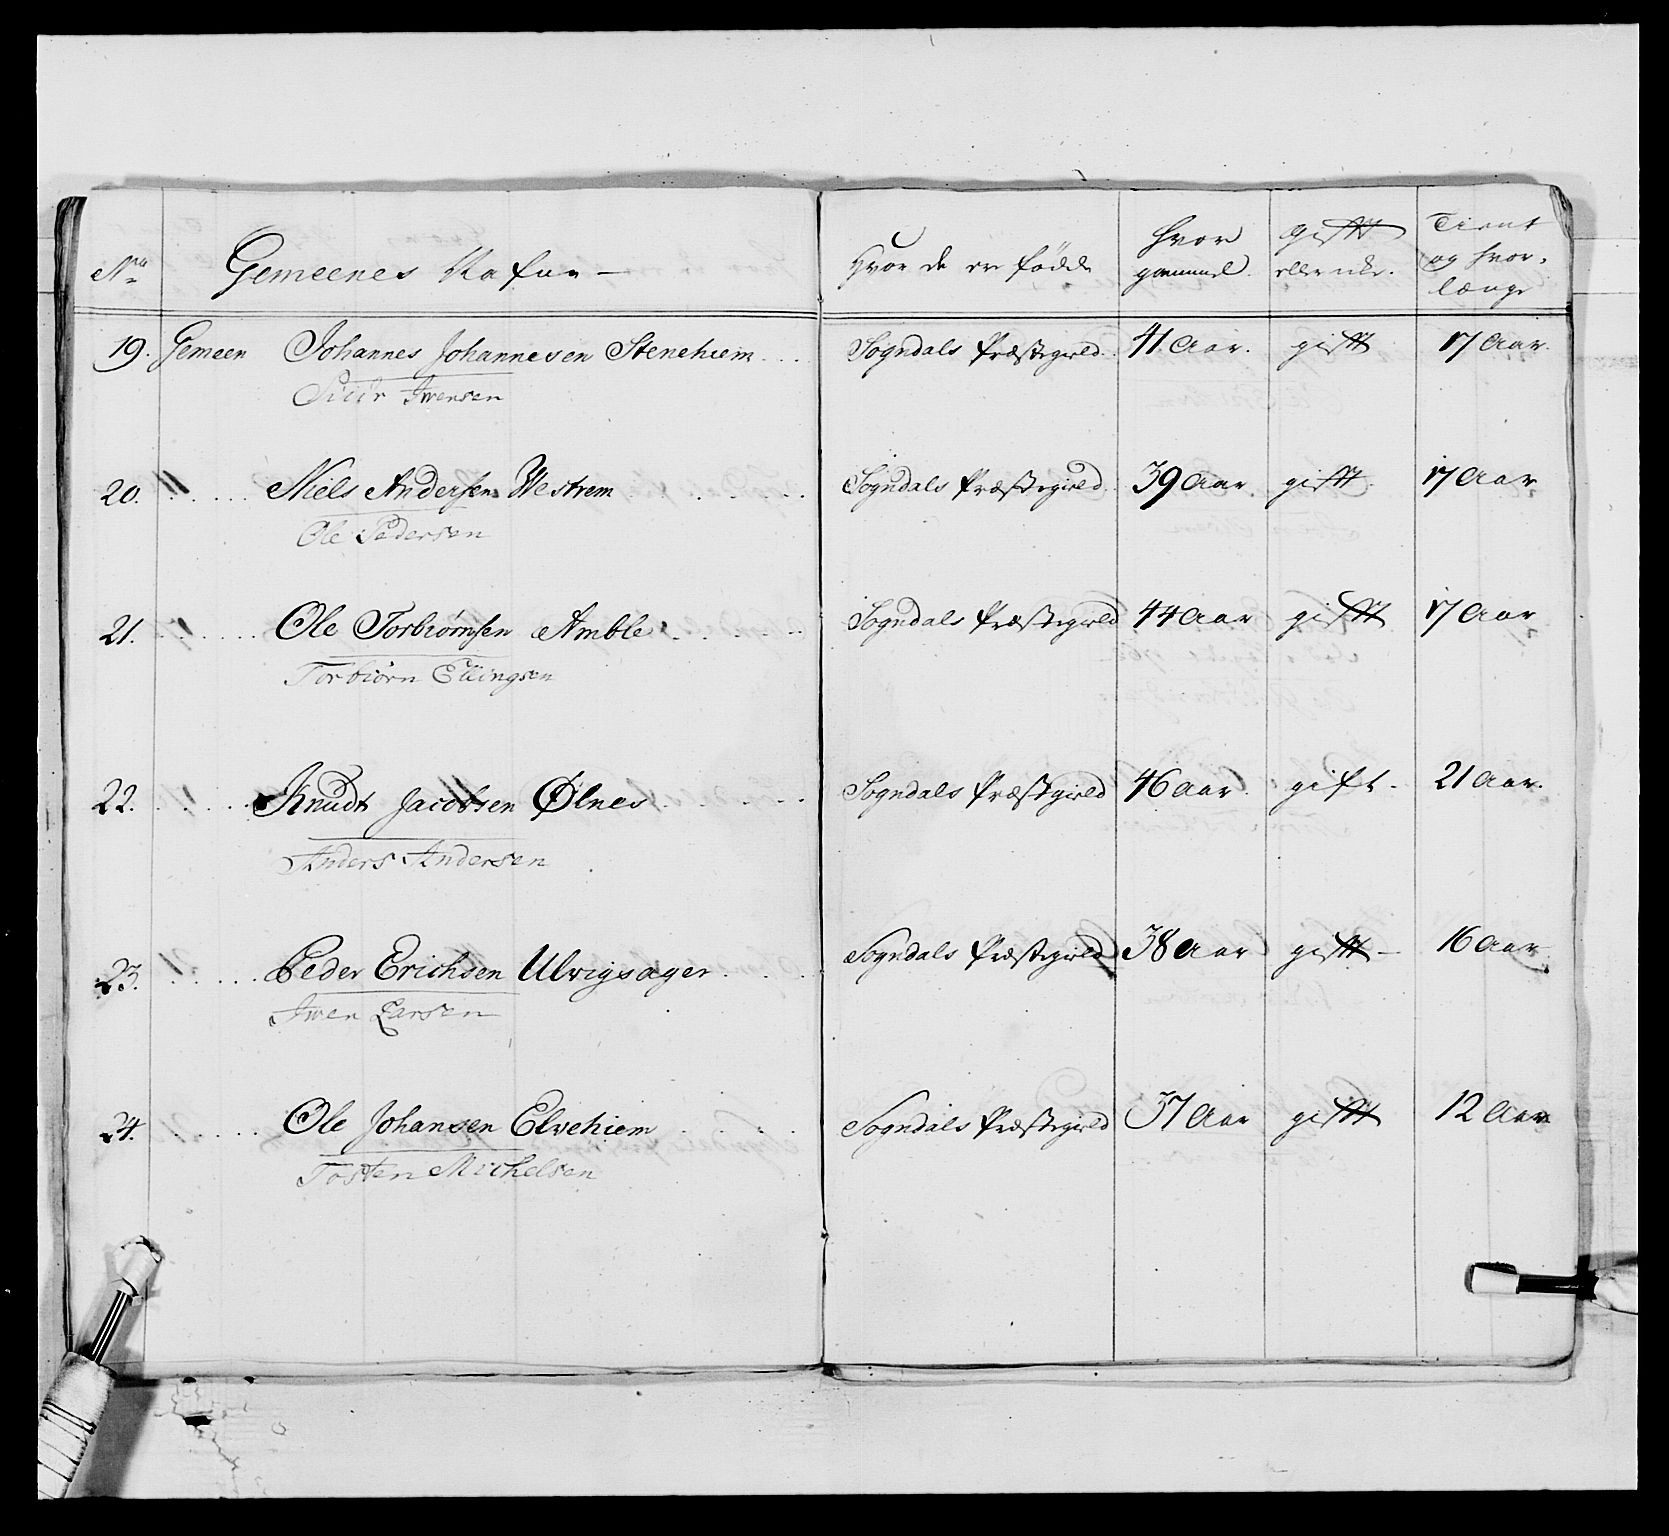 No Gemeenes Nafne — Hvor de er födde hvor gammel gift eller icke. Tient og hvor længe
19. Gemeen Johannes Johannesen Stenehiem . . . Sogndals Præstegield. 41 Aar. gift 17 Aar.
Siur Iwersen
20. " . . . . Niels Andersen Westrem . . . . . Sogndals Præstegield 39 Aar gift 17 Aar
Ole Pedersen
21. . " . . . . Ole Torbiørnsen Amble . . . . . Sogndals Præstegield 44 Aar gift 17 Aar
Torbiørn Ellingsen
22. . " . . . . Knudt Jacobsen Ølnes . . . . . Sogndals Præstgield 46 Aar gift - 21 Aar.
Anders Andersen
23. . " . . . . Peder Erichsen Ulvigsager . . . . Sogndals Præstegield 38 Aar gift — 16 Aar
Iwer Larsen
24. . . . . . Ole Johansen Elvehiem . . . . . Sogndals Præstegield 37 Aar gift 12 Aar
Tosten Michelsen